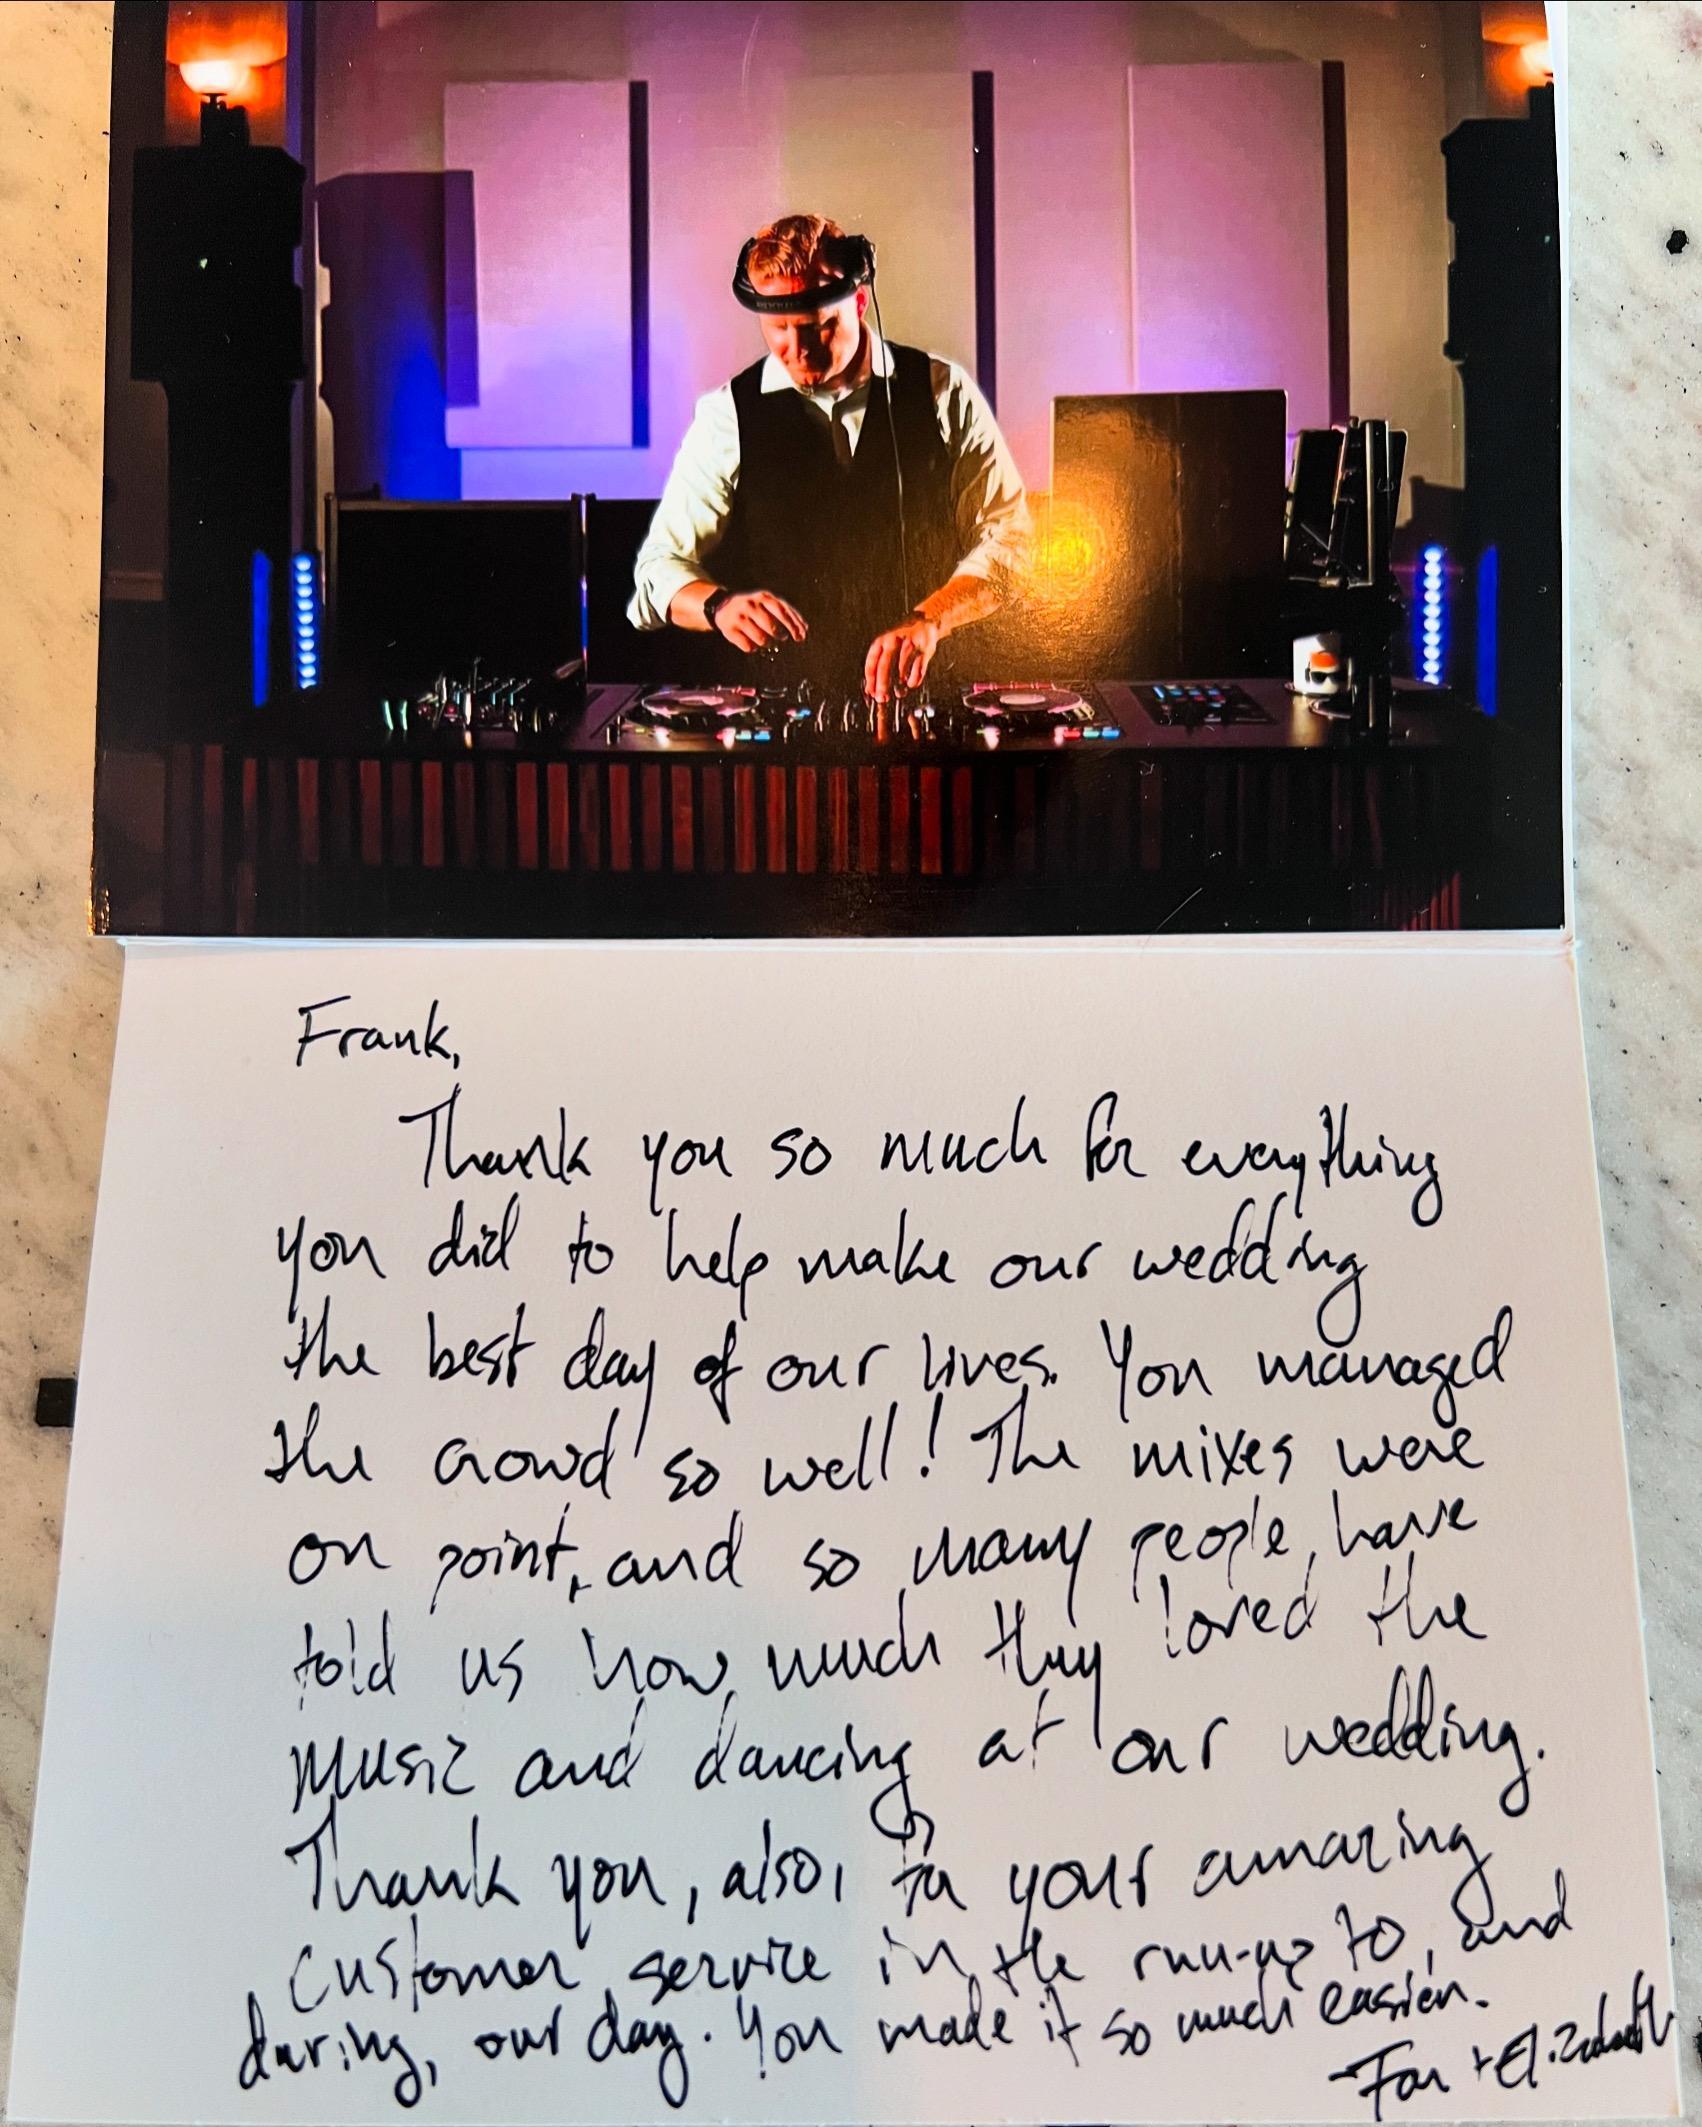 Frank,
Thank you so much for everything
you did to help make our wedding
the best day of our lives. You managed
the crowd so well! The mixes were
on point, and so many people, have
told us how much they loved the
music and dancing at our wedding.
Thank you, also, for your amazing
customer service in the run-up to, and
during, our day. You made it so much easier.
+ Elizabeth